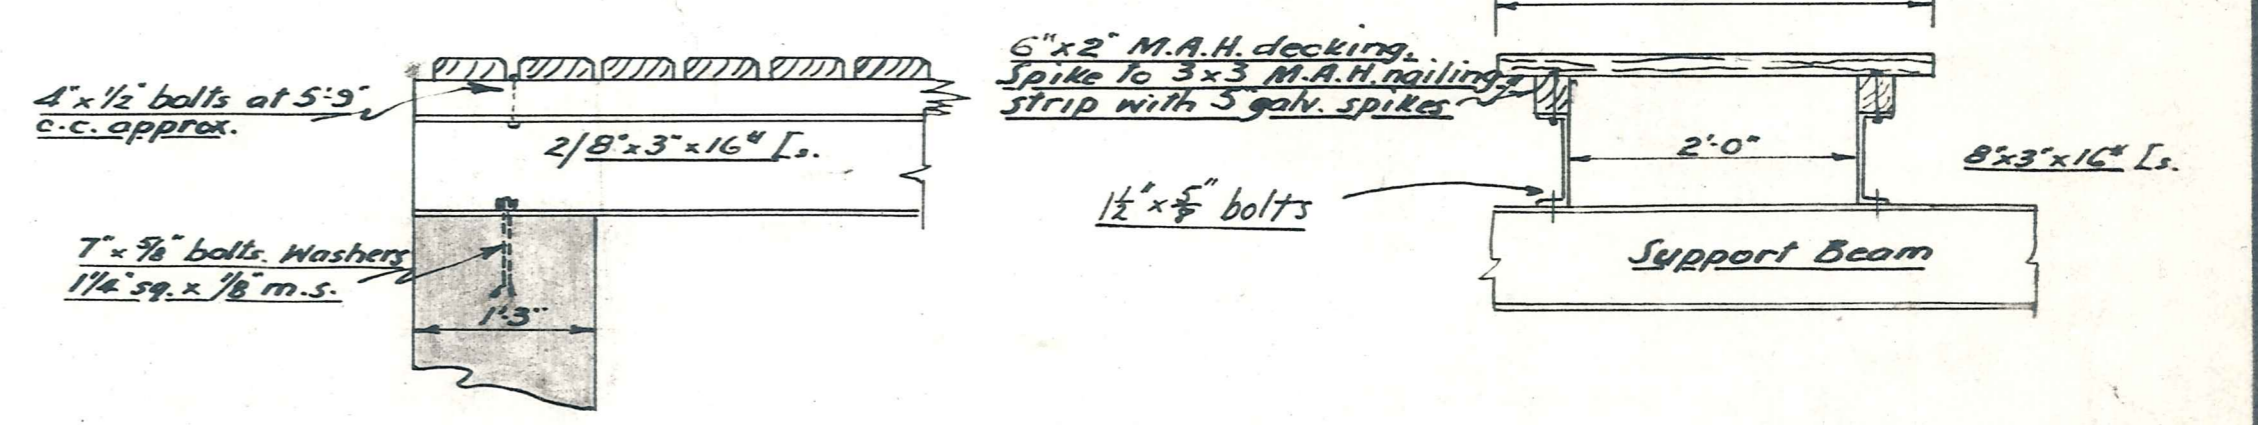 4"x 1/2" bolts at 5'-9"
c.c. approx.
2/8"x3"x16# [s.
7"x 5/8" bolts. Washers
1 1/4" sq. x 1/8" m.s.
1'-3"
6"x2" M.A.H. decking.
Spike to 3x3 M.A.H. nailing
strip with 5" galv. spikes
2'-0"
8"x3"x16# [s.
1 1/2" x 5/8" bolts
Support Beam